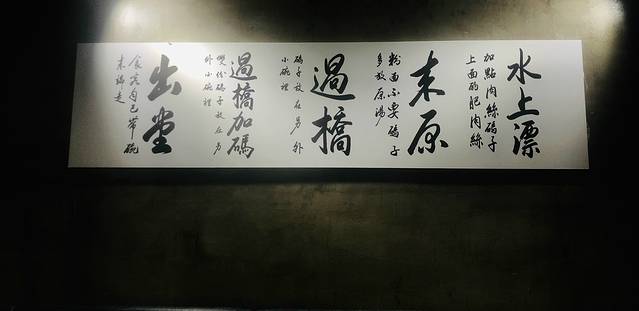 水上漂
加點肉絲碼子
上面的肥肉絲
末原
粉面不要碼子
多放原湯
過橋
碼子放在另外
小碗裡
過橋加碼
雙份碼子放在另
外小碗裡
出堂
食客自己帶碗
來端走